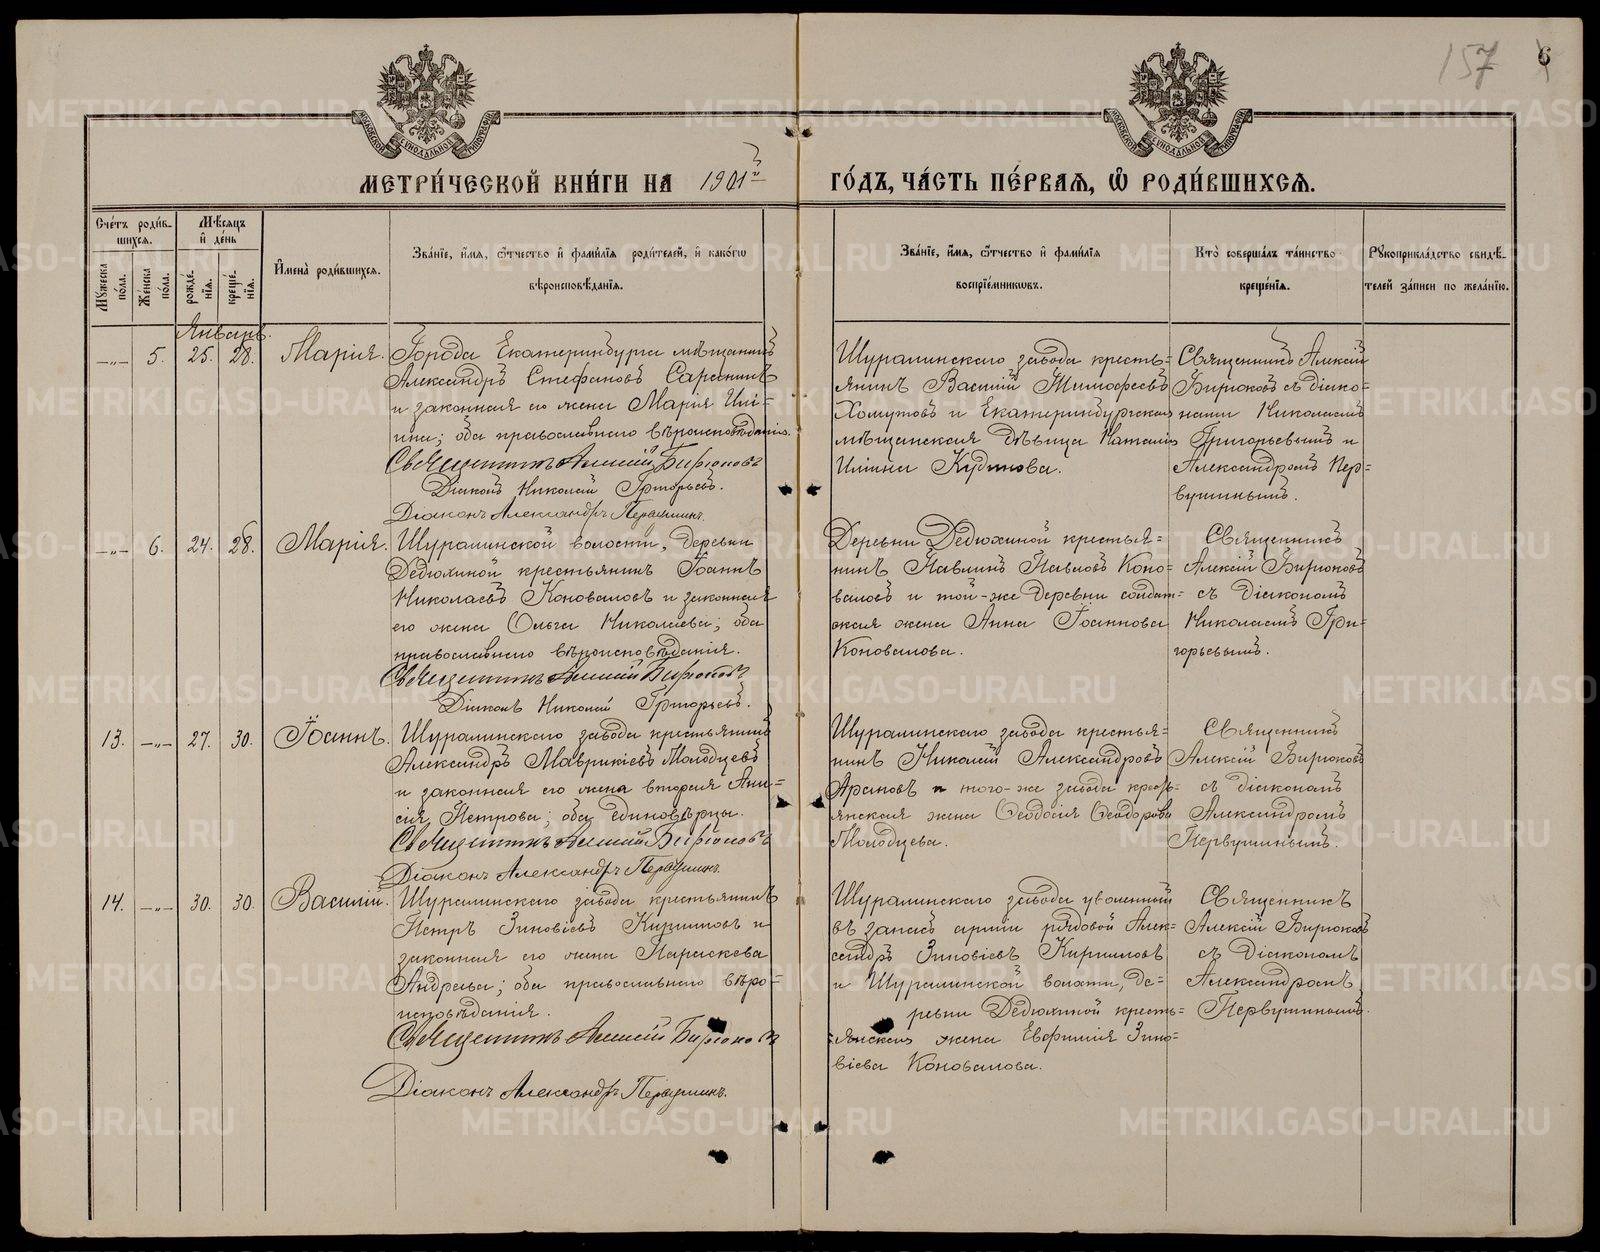 157 6
МЕТРИ́ЧЕСКОЙ КНИ́ГИ НА 1901й ГО́ДЪ, ЧА́СТЬ ПЕ́РВАѦ, Ѡ҆ РОДИ́ВШИХСѦ.
Сче́тъ роди́в-
шихся.
Мѣ́сяцъ
и҆ де́нь
Му́жеска по́ла.
Же́нска по́ла.
рожде́нїѧ.
креще́нїѧ.
И҆мена̀ роди́вшихсѧ.
Зва́нїе, и҆́мѧ, ѻ҆́тчество и҆ фами́лїѧ роди́телей, и҆ како́гѡ
вѣроисповѣ́данїѧ.
Зва́нїе, и҆́мѧ, ѻ҆́тчество и҆ фами́лїѧ
воспрїе́мниковъ.
Кто̀ соверша́лъ та́инство
креще́нїѧ.
Рукоприкла́дство свидѣ́-
телей за́писи по жела́нїю.
Январь.
—„— 5. 25. 28. Марія.
Города Екатеринбурга мѣщанинъ
Александръ Стефановъ
и законная его жена Марія Илі-
ина; оба православнаго вѣроисповѣданія.
Священникъ Алексій Бирюковъ
Діаконъ Николай Григорьевъ.
Діаконъ Александръ Первушинъ.
Шуралинскаго завода кресть-
янинъ Василій Тимофеевъ
Хомутовъ и Екатеринбургская
мѣщанская дѣвица Наталія
Иліина Кудинова.
Священникъ Алексій
Бирюковъ съ діако-
нами Николаемъ
Григорьевымъ и
Александромъ Пер-
вушинымъ.
—„— 6. 24. 28. Марія.
Шуралинской волости, деревни
Дедюхиной крестьянинъ Іоаннъ
Николаевъ Коноваловъ и законная
его жена Ольга Николаева; оба
православнаго вѣроисповѣданія.
Священникъ Алексій Бирюковъ
Діаконъ Николай Григорьевъ.
Деревни Дедюхиной крестья-
нинъ Павлинъ Павловъ Коно-
валовъ и той-же деревни солдат-
ская жена Анна Іоаннова
Коновалова.
Священникъ
Алексій Бирюковъ
съ діакономъ
Николаемъ Гри-
горьевымъ.
13. —„— 27. 30. Іоаннъ.
Шуралинскаго завода крестьянинъ
Александръ Маврикіевъ Молодцевъ
и законная его жена вторая Ани-
сія Петрова; оба единовѣрцы.
Священникъ Алексій Бирюковъ
Діаконъ Александръ Первушинъ.
Шуралинскаго завода крестья-
нинъ Николай Александровъ
Араповъ и того-же завода кресть-
янская жена Ѳеодосія Ѳеодорова
Молодцева.
Священникъ
Алексій Бирюковъ
съ діакономъ
Александромъ
Первушинымъ.
14. —„— 30. 30. Василій.
Шуралинскаго завода крестьянинъ
Петръ Зиновіевъ Кирилловъ и
законная его жена Параскева
Андреева; оба православнаго вѣро-
исповѣданія.
Священникъ Алексій Бирюковъ
Діаконъ Александръ Первушинъ.
Шуралинскаго завода уволенный
въ запасъ арміи рядовой Алек-
сандръ Зиновіевъ Кирилловъ
и Шуралинской волости, де-
ревни Дедюхиной кресть-
янская жена Евфимія Зино-
віева Коновалова.
Священникъ
Алексій Бирюковъ
съ діакономъ
Александромъ
Первушинымъ.
METRIKI.GASO-URAL.RU